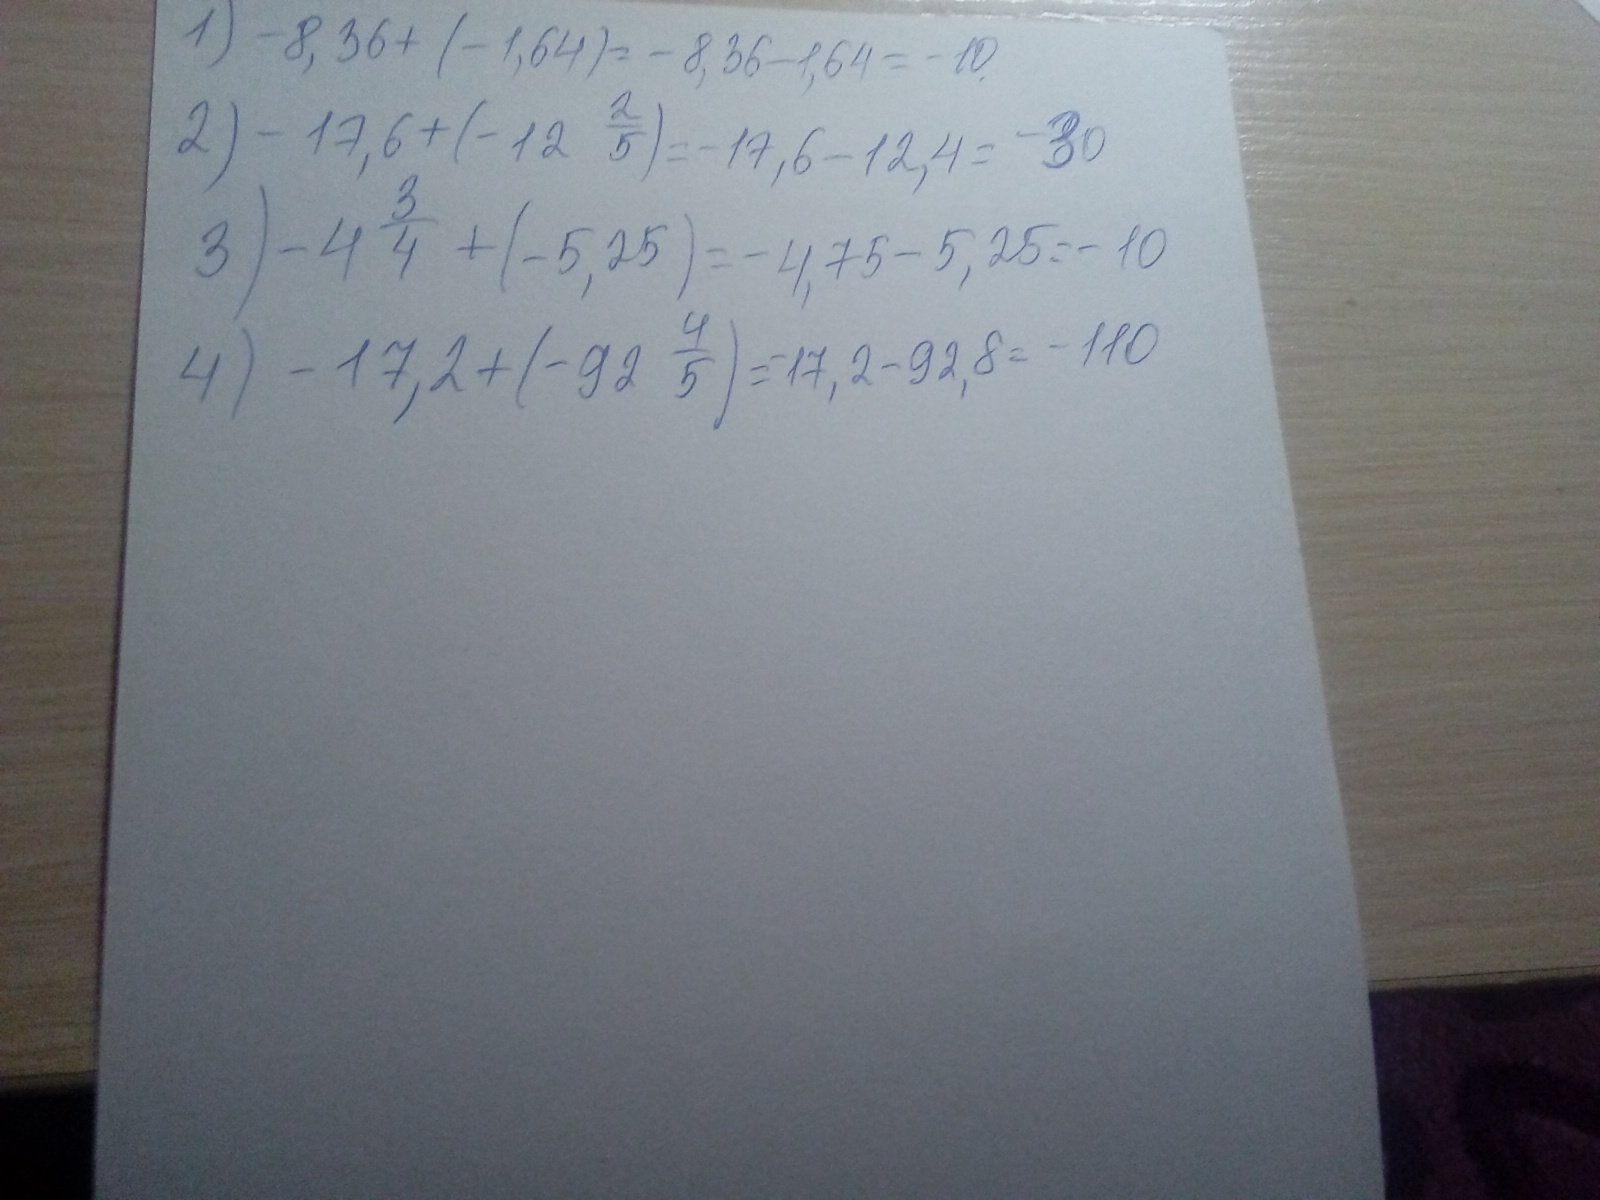 1) -8,36+(-1,64)=-8,36-1,64=-10
2) -17,6+(-12 2/5)=-17,6-12,4=-30
3) -4 3/4 +(-5,25)=-4,75-5,25=-10
4) -17,2+(-92 4/5)=-17,2-92,8=-110